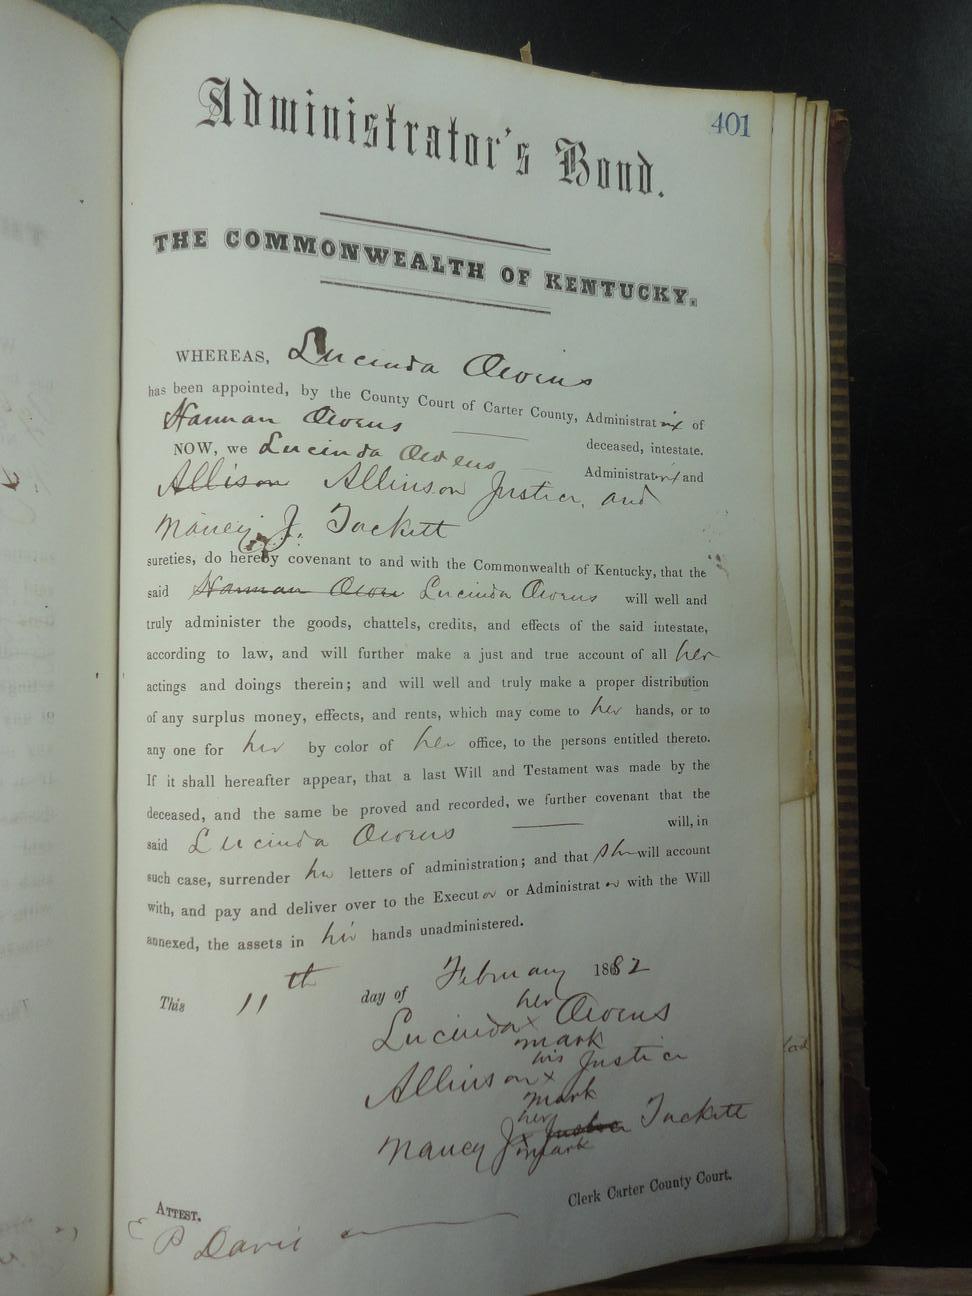 401
Administrator's Bond.
THE COMMONWEALTH OF KENTUCKY.
WHEREAS, Lucinda Owens
has been appointed, by the County Court of Carter County, Administratrix of
Harman Owens
deceased, intestate.
NOW, we Lucinda Owens Administratrix and
Allison Allinson Justice, and
Nancy J. Tackett
sureties, do hereby covenant to and with the Commonwealth of Kentucky, that the
said Harman Owen Lucinda Owens will well and
truly administer the goods, chattels, credits, and effects of the said intestate,
according to law, and will further make a just and true account of all her
actings and doings therein; and will well and truly make a proper distribution
of any surplus money, effects, and rents, which may come to her hands, or to
any one for her by color of her office, to the persons entitled thereto.
If it shall hereafter appear, that a last Will and Testament was made by the
deceased, and the same be proved and recorded, we further covenant that the
said Lucinda Owens will, in
such case, surrender her letters of administration; and that she will account
with, and pay and deliver over to the Executor or Administrator with the Will
annexed, the assets in her hands unadministered.
This 11th day of February 1882
her
Lucinda x Owens
mark
his
Allinson x Justice
mark
her
Nancy J x Tackett
mark
Clerk Carter County Court.
ATTEST.
P Davis